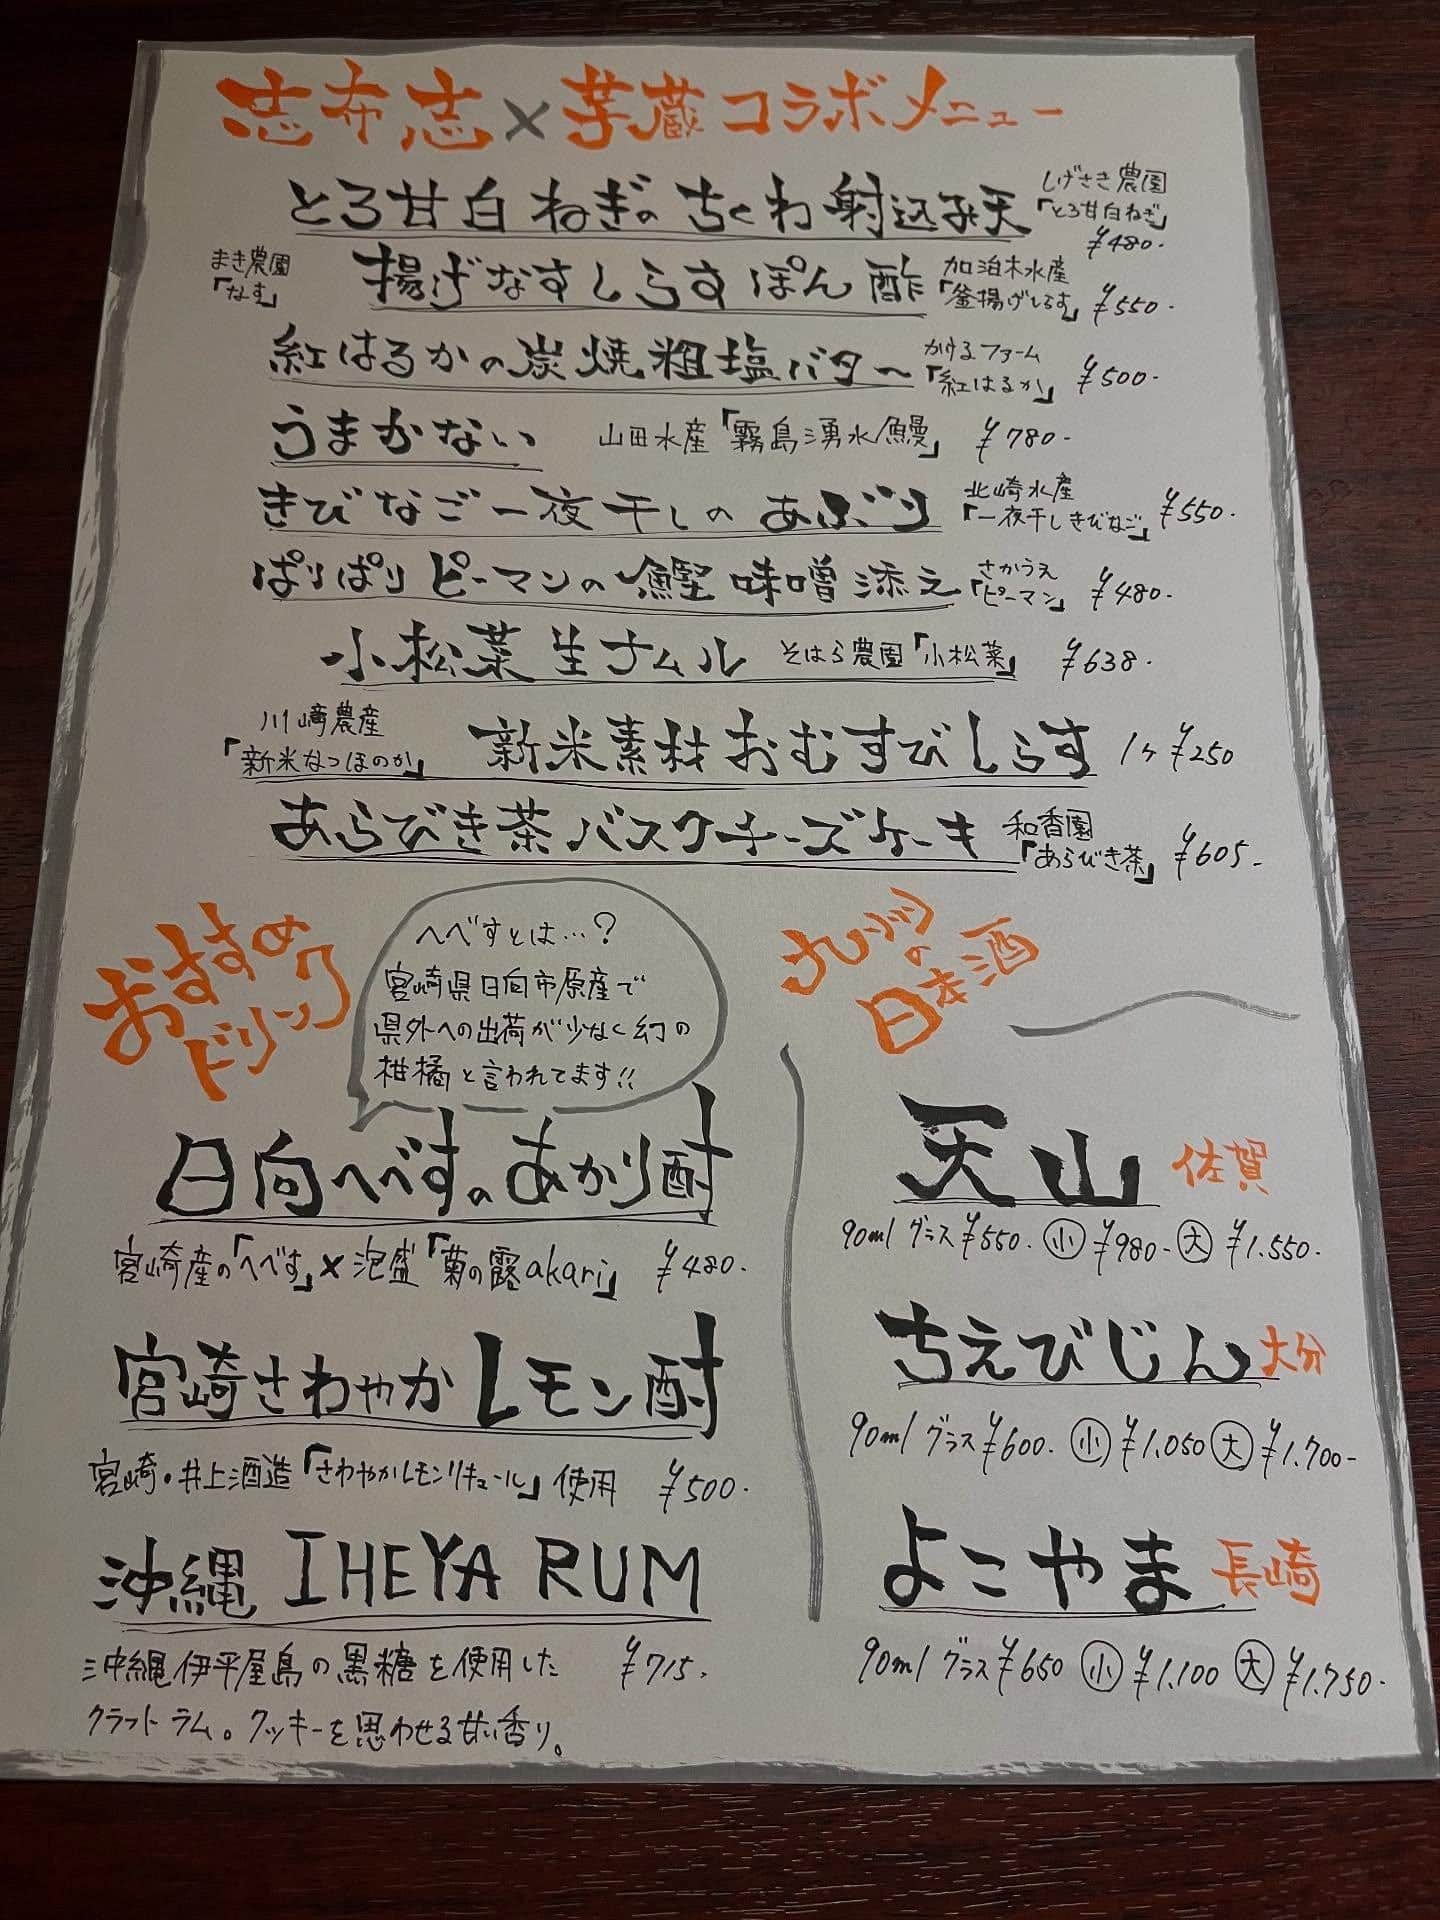 志布志×芋蔵コラボメニュー
とろ甘白ねぎのちくわ射込み天 しげさき農園「とろ甘白ねぎ」 ¥480-
まき農園「なす」 揚げなすしらすぽん酢 加治木水産「釜揚げしらす」 ¥550-
紅はるかの炭焼粗塩バター かけるファーム「紅はるか」 ¥500-
うまかない 山田水産「霧島湧水鰻」 ¥780-
きびなご一夜干しのあぶり 北崎水産「一夜干しきびなご」 ¥550-
ぱりぱりピーマンの鰹味噌添え さかうえ「ピーマン」 ¥480-
小松菜生ナムル そはら農園「小松菜」 ¥638-
川崎農産「新米なつほのか」 新米素材おむすびしらす 1ヶ¥250
あらびき茶バスクチーズケーキ 和香園「あらびき茶」 ¥605-
おすすめドリンク
へべすとは…?
宮崎県日向市原産で
県外への出荷が少なく幻の
柑橘と言われてます!!
日向へべすのあかり酎
宮崎産の「へべす」×泡盛「菊の露akari」 ¥480-
宮崎さわやかレモン酎
宮崎・井上酒造「さわやかレモンリキュール」使用 ¥500-
沖縄 IHEYA RUM
沖縄伊平屋島の黒糖を使用した ¥715-
クラフトラム。クッキーを思わせる甘い香り。
九州の
日本酒
天山 佐賀
90mlグラス¥550- 小¥980- 大¥1.550-
ちえびじん 大分
90mlグラス¥600- 小¥1.050 大¥1.700-
よこやま 長崎
90mlグラス¥650 小¥1.100 大¥1.750-